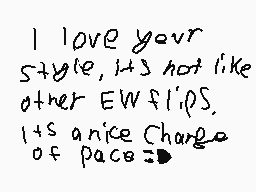 I love yovr
style, its not like
other EW flips.
Its a nice Change
of pace =D